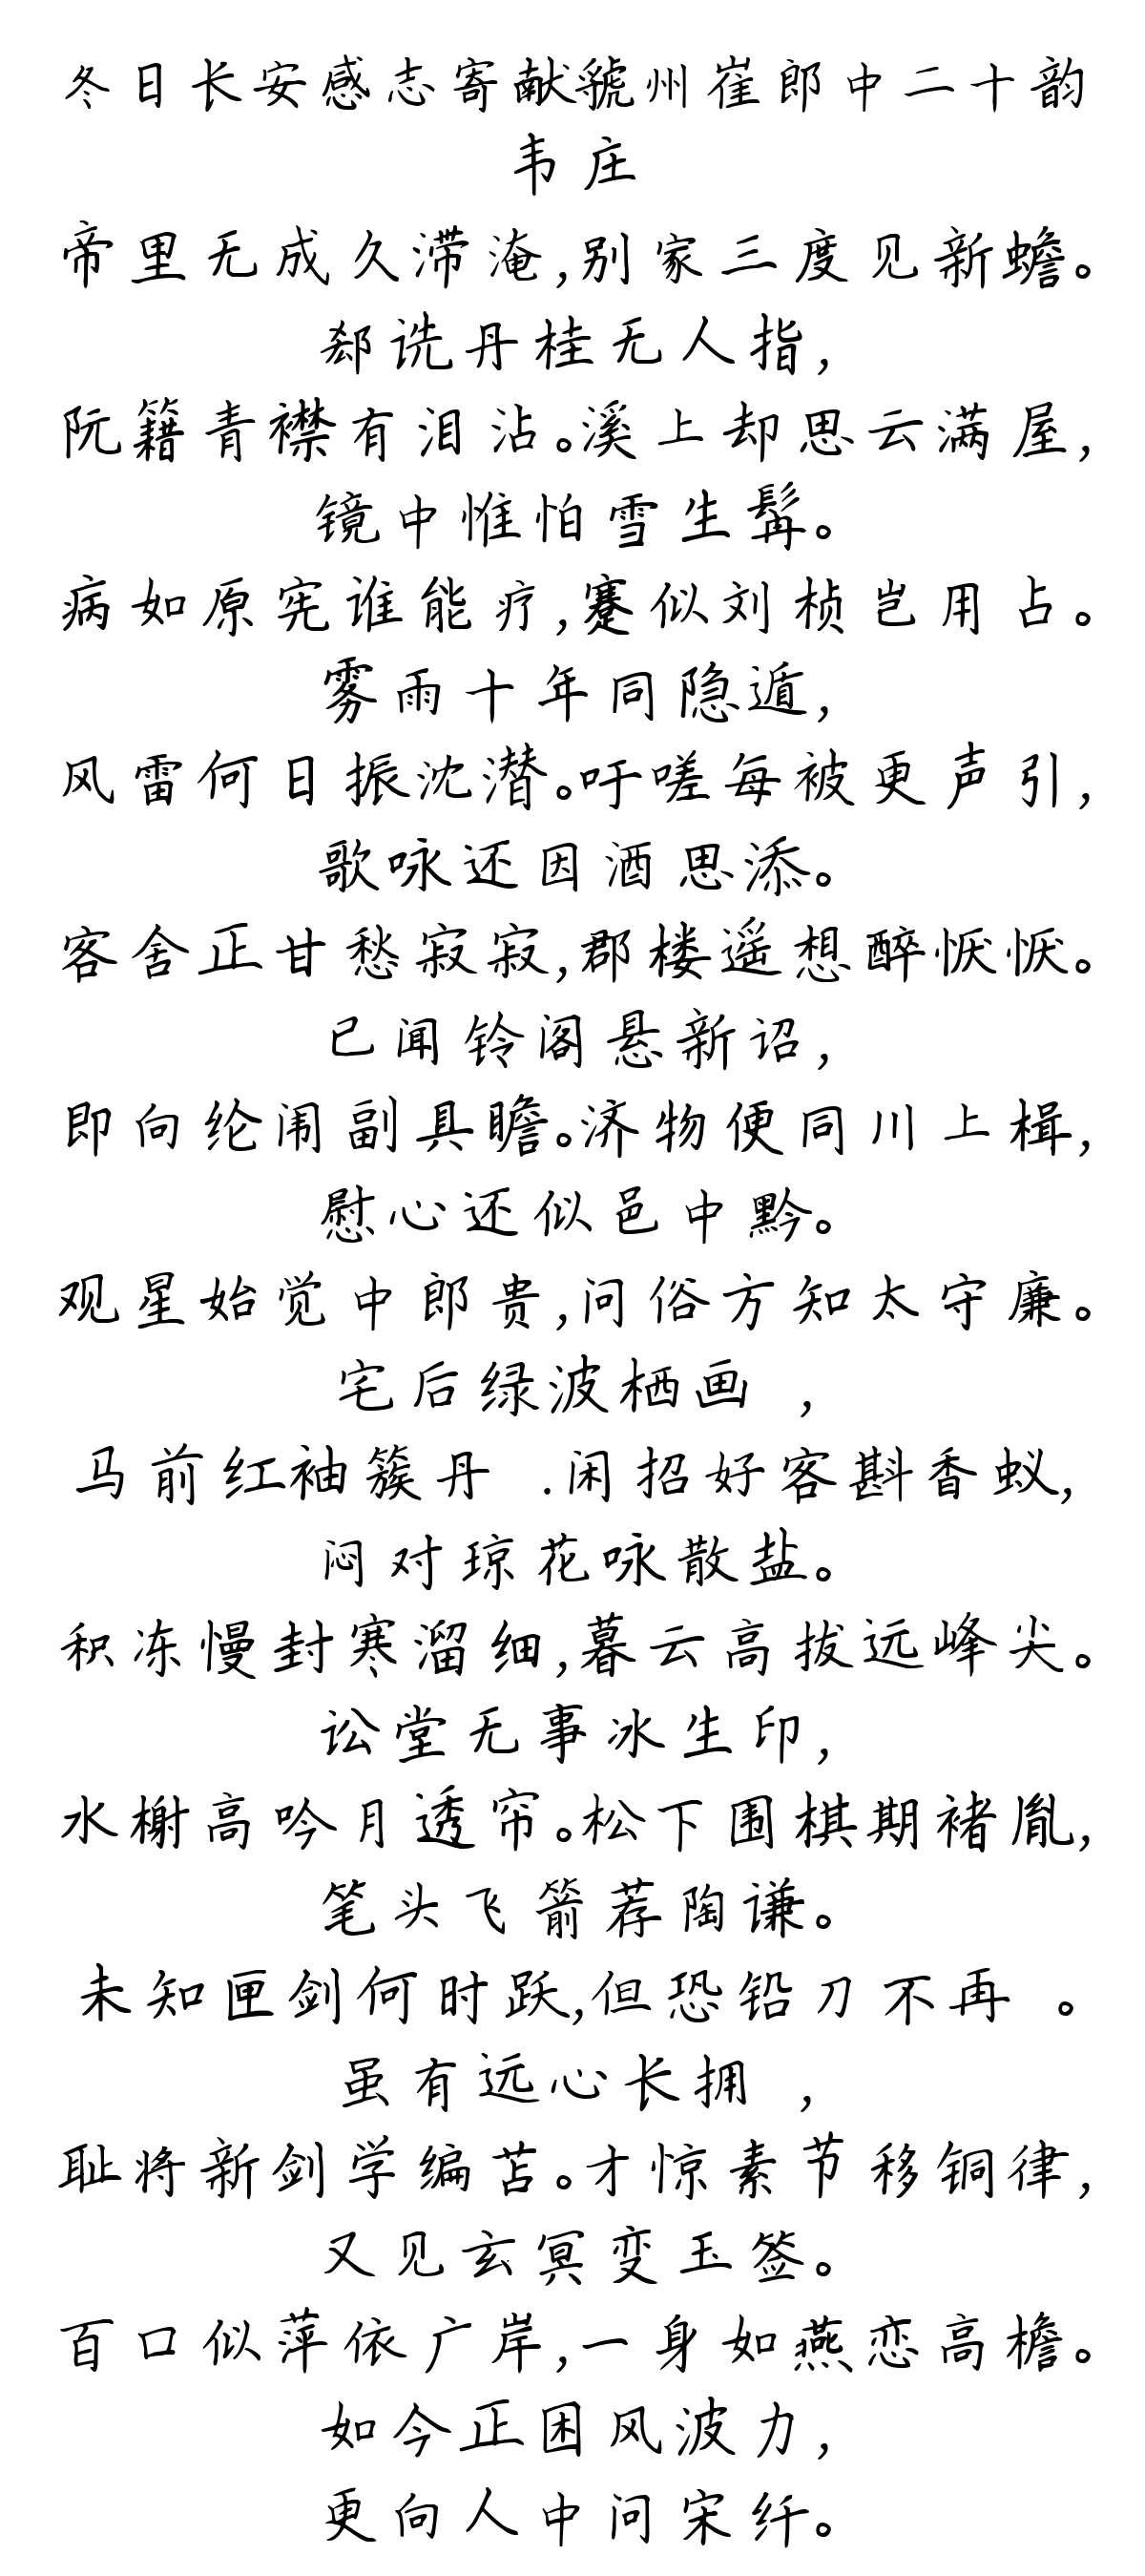 冬日长安感志寄献虢州崔郎中二十韵
韦庄
帝里无成久滞淹,别家三度见新蟾。
郄诜丹桂无人指,
阮籍青襟有泪沾。溪上却思云满屋,
镜中惟怕雪生髯。
病如原宪谁能疗,蹇似刘桢岂用占。
雾雨十年同隐遁,
风雷何日振沈潜。吁嗟每被更声引,
歌咏还因酒思添。
客舍正甘愁寂寂,郡楼遥想醉恹恹。
已闻铃阁悬新诏,
即向纶闱副具瞻。济物便同川上楫,
慰心还似邑中黔。
观星始觉中郎贵,问俗方知太守廉。
宅后绿波栖画 ,
马前红袖簇丹 .闲招好客斟香蚁,
闷对琼花咏散盐。
积冻慢封寒溜细,暮云高拔远峰尖。
讼堂无事冰生印,
水榭高吟月透帘。松下围棋期褚胤,
笔头飞箭荐陶谦。
未知匣剑何时跃,但恐铅刀不再 。
虽有远心长拥 ,
耻将新剑学编苫。才惊素节移铜律,
又见玄冥变玉签。
百口似萍依广岸,一身如燕恋高檐。
如今正困风波力,
更向人中问宋纤。